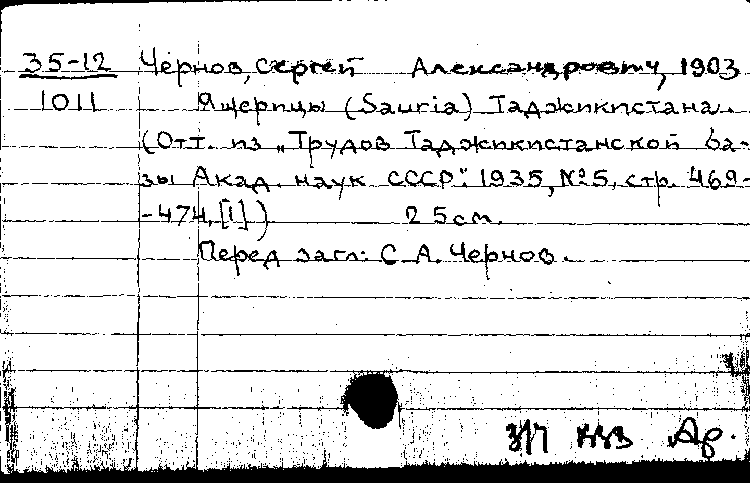 35-12 Чернов, Сергей Александрович, 1903
1011 Ящерицы (Sauria) Таджикистана.
(Отт. из „Трудов Таджикистанской ба-
зы Акад. наук СССР". 1935, №5, стр. 469-
-474, [1]) 25см.
Перед загл: С. А. Чернов.
Др.